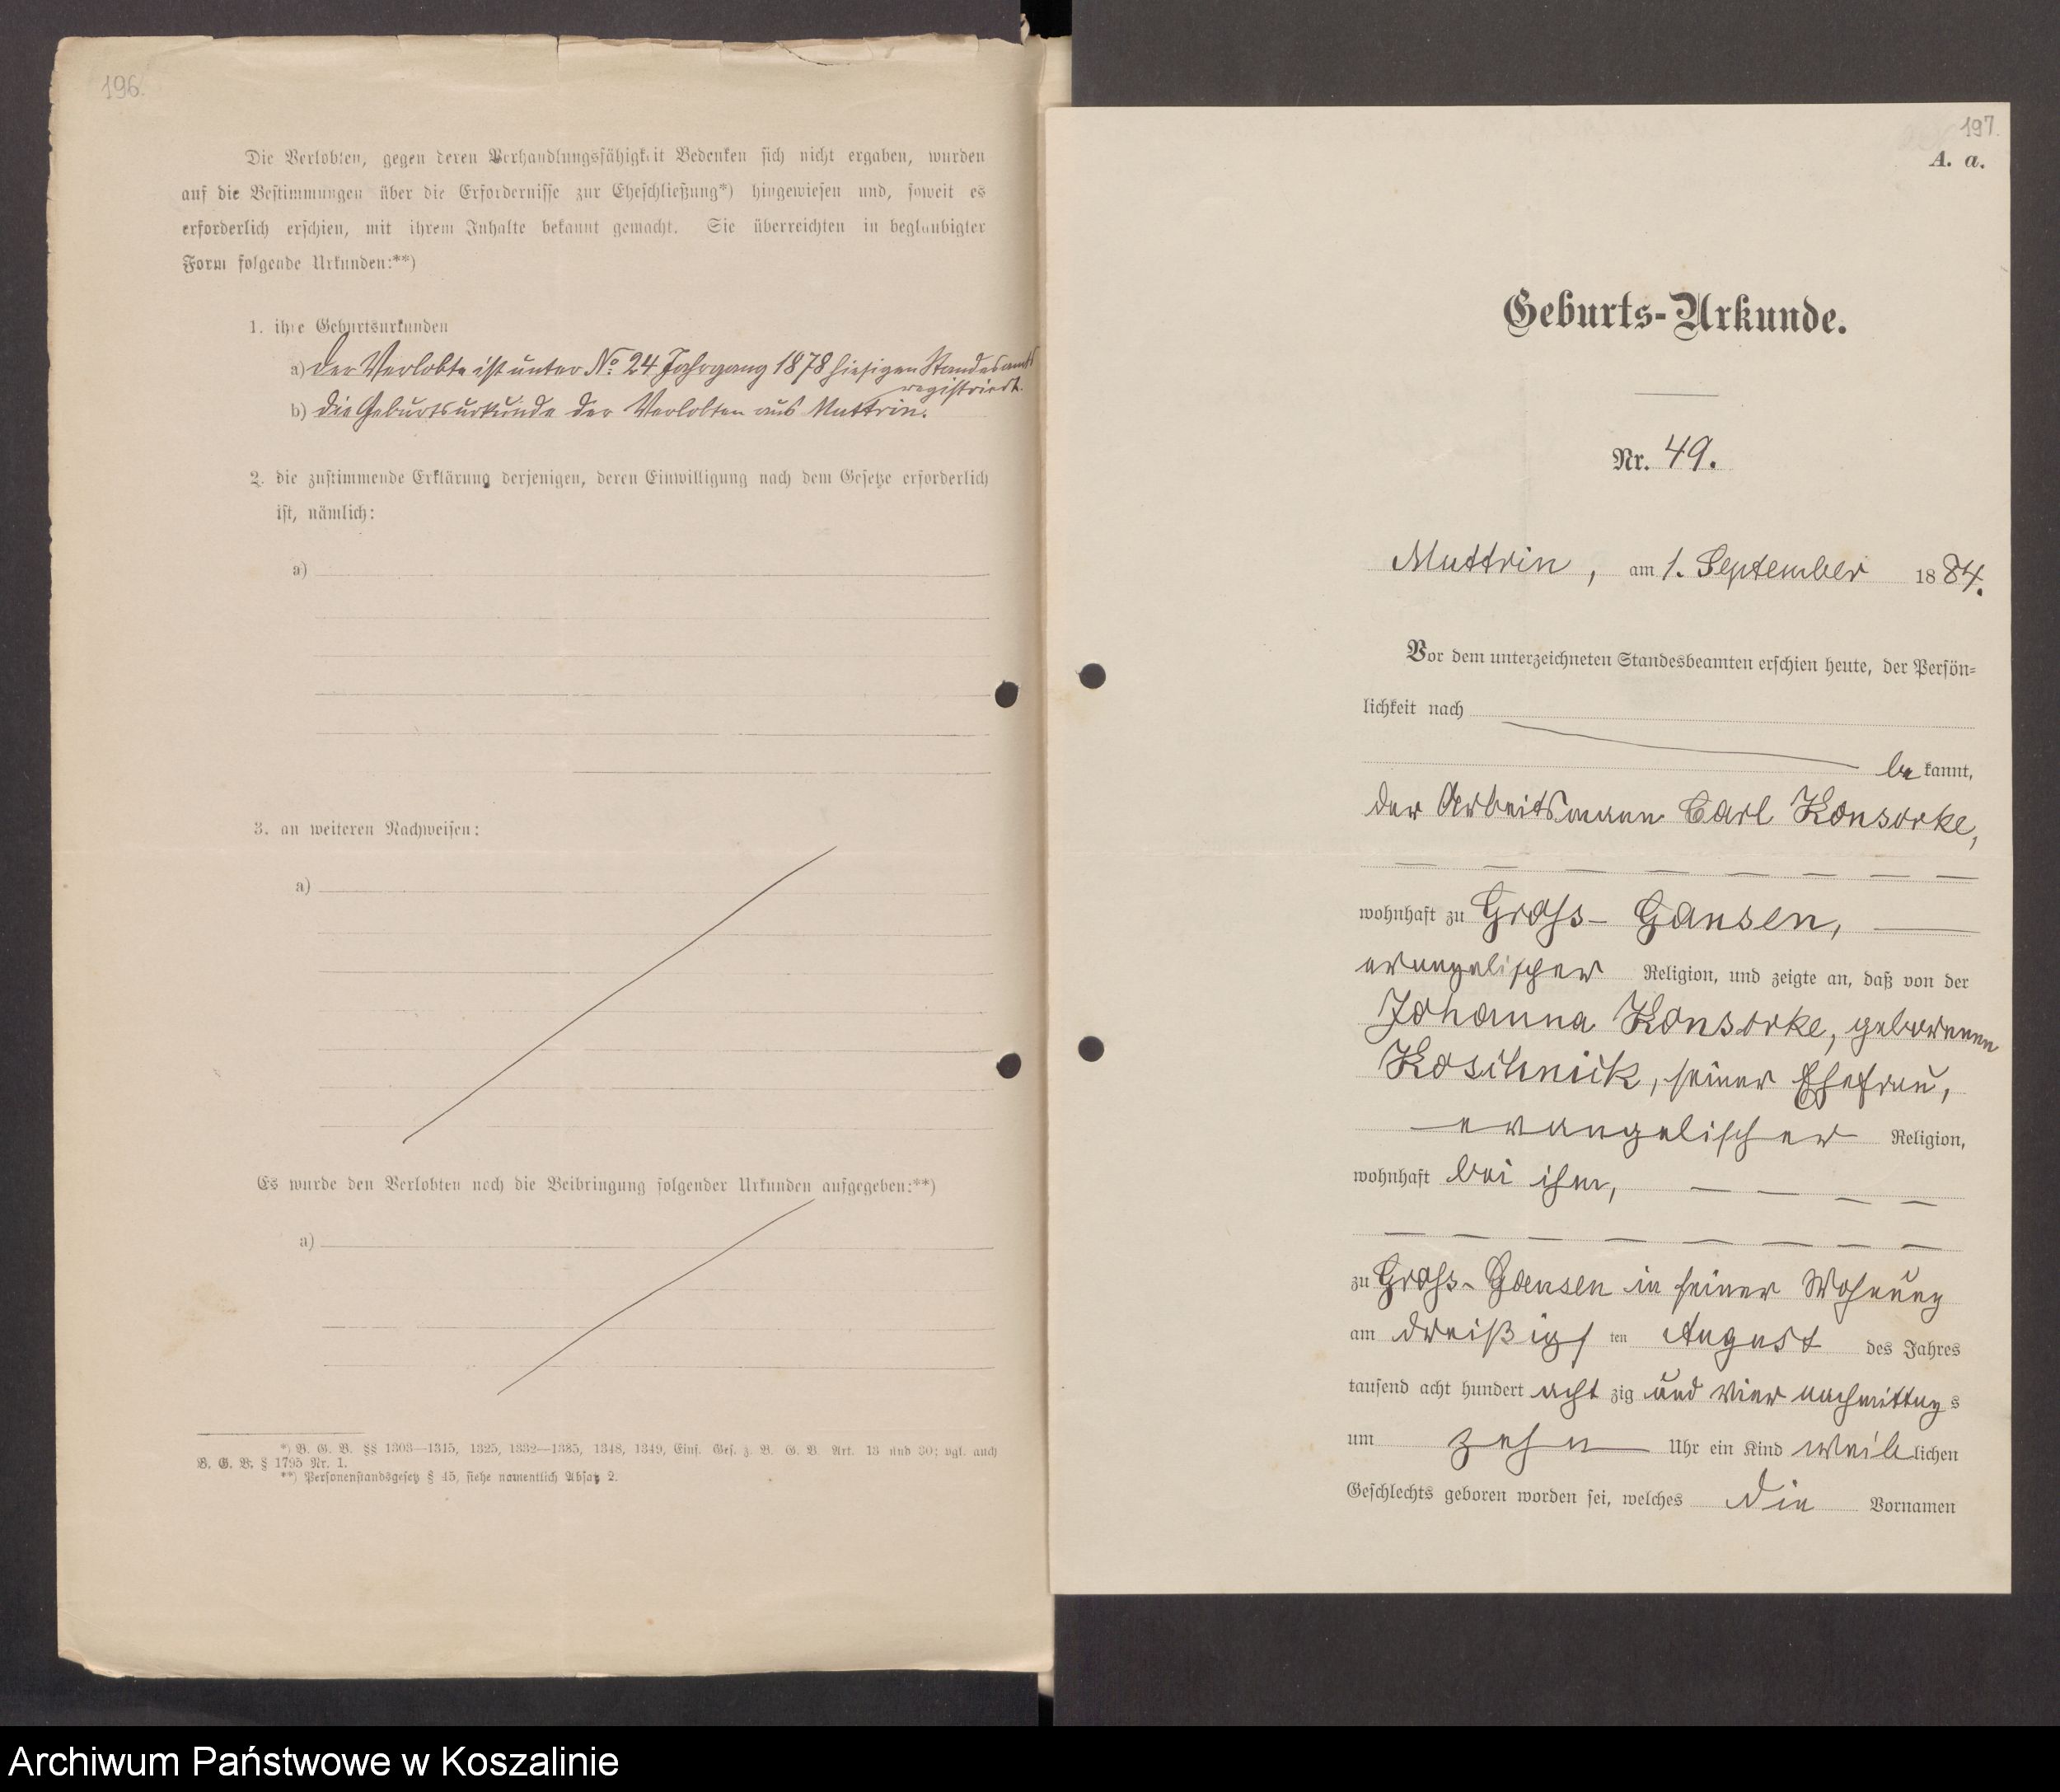 196.
Die Verlobten, gegen deren Verhandlungsfähigkeit Bedenken sich nicht ergaben, wurden
auf die Bestimmungen über die Erfordernisse zur Eheschließung*) hingewiesen und, soweit es
erforderlich erschien, mit ihrem Inhalte bekannt gemacht. Sie überreichten in beglaubigter
Form folgende Urkunden:**)
1. ihre Geburtsurkunden
a) Der Verlobte ist unter No. 24 Jahrgang 1878 hiesigen Standesamts
registriert.
b) die Geburtsurkunde der Verlobten aus Muttrin.
2. die zustimmende Erklärung derjenigen, deren Einwilligung nach dem Gesetze erforderlich
ist, nämlich:
a)
3. an weiteren Nachweisen:
a)
Es wurde den Verlobten noch die Beibringung folgender Urkunden aufgegeben:**)
a)
*) B. G. B. §§ 1303—1315, 1325, 1332—1335, 1348, 1349, Einf. Ges. z. B. G. B. Art. 13 und 30; vgl. auch
B. G. B. § 1795 Nr. 1.
**) Personenstandsgesetz § 45, siehe namentlich Absatz 2.
197.
A. a.
Geburts-Urkunde.
Nr. 49.
Muttrin, am 1. September 1884.
Vor dem unterzeichneten Standesbeamten erschien heute, der Persön-
lichkeit nach
be kannt,
der Arbeitsmann Carl Konsorke,
wohnhaft zu Gross-Gansen,
evangelischer Religion, und zeigte an, daß von der
Johanna Konsorke, geborenen
Koschnick, seiner Ehefrau,
evangelischer Religion,
wohnhaft bei ihm,
zu Gross-Gansen in seiner Wohnung
am dreißigsten August des Jahres
tausend acht hundert acht zig und vier nachmittags
um zehn Uhr ein Kind weiblichen
Geschlechts geboren worden sei, welches die Vornamen
Archiwum Państwowe w Koszalinie